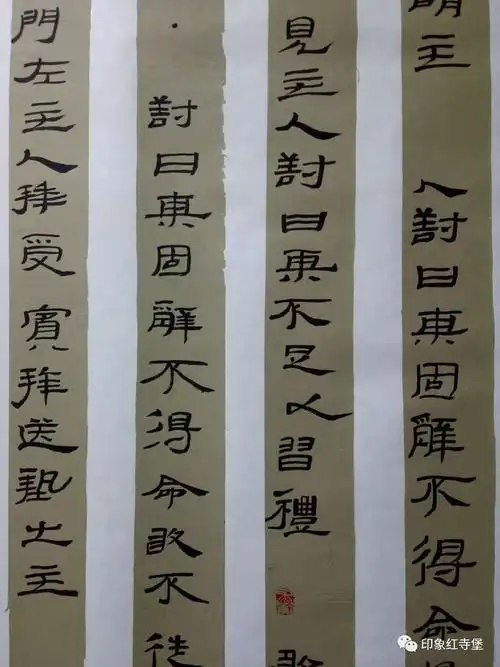 主 人對曰某固辭不得命
見主人對曰某不足以習禮 敢
·對曰某固辭不得命敢不從
門左主人拜受賓拜送摯出主
印象红寺堡